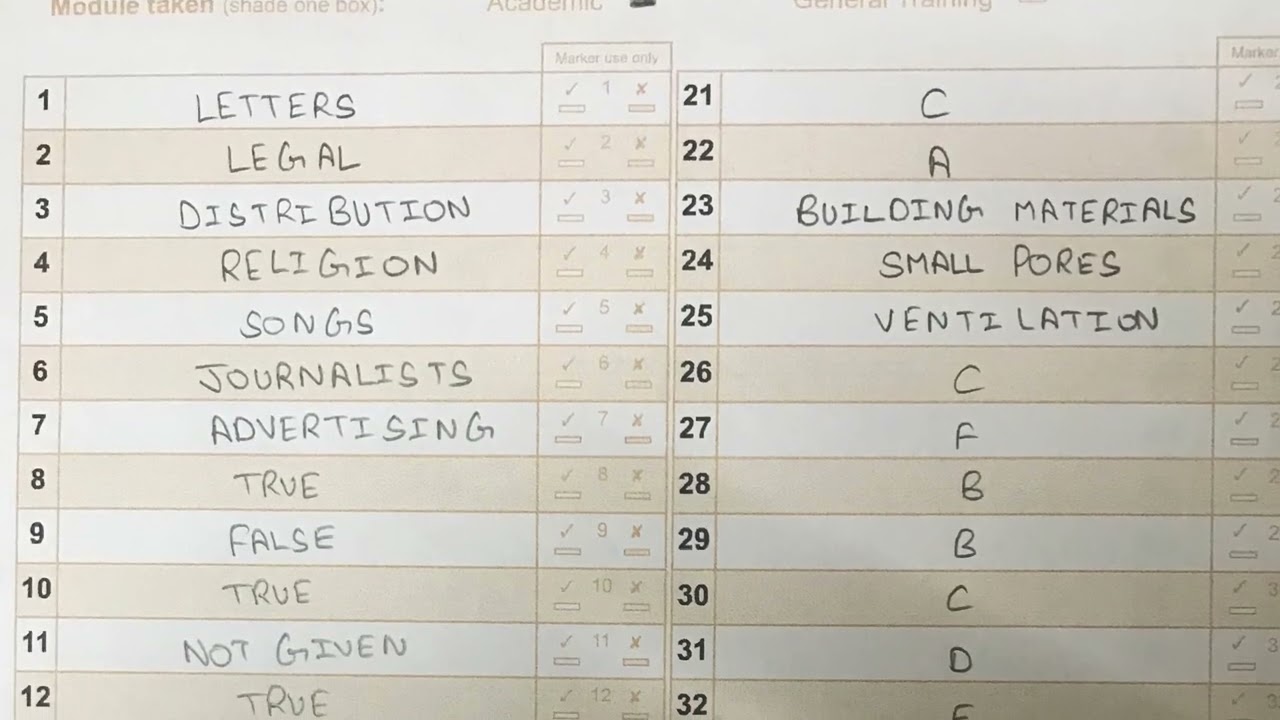 Module taken (shade one box): Academic General Training
Marker use only
Marker
1 LETTERS ✓ 1 ✗
2 LEGAL ✓ 2 ✗
3 DISTRIBUTION ✓ 3 ✗
4 RELIGION ✓ 4 ✗
5 SONGS ✓ 5 ✗
6 JOURNALISTS ✓ 6 ✗
7 ADVERTISING ✓ 7 ✗
8 TRUE ✓ 8 ✗
9 FALSE ✓ 9 ✗
10 TRUE ✓ 10 ✗
11 NOT GIVEN ✓ 11 ✗
12 TRUE ✓ 12 ✗
21 C ✓ 2
22 A ✓ 2
23 BUILDING MATERIALS ✓ 2
24 SMALL PORES ✓ 2
25 VENTILATION ✓ 2
26 C ✓ 2
27 F ✓ 2
28 B ✓ 2
29 B ✓ 2
30 C ✓ 3
31 D ✓ 3
32 ✓ 3